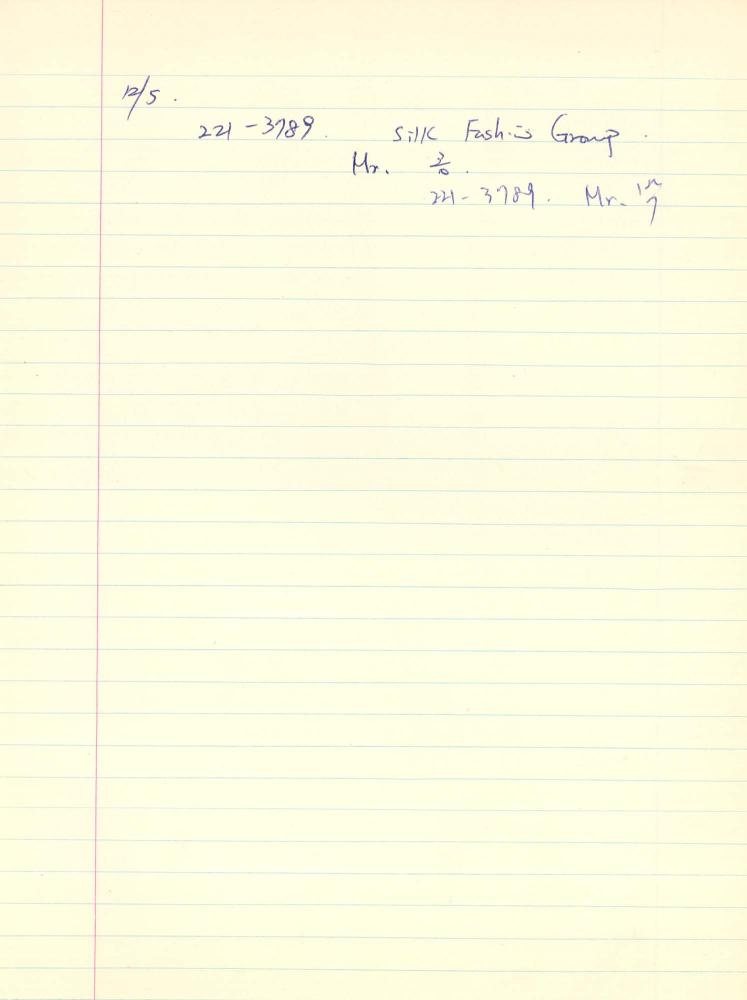 12/5.
221-3789. Silk Fashion Group.
Mr.
221-3789. Mr.